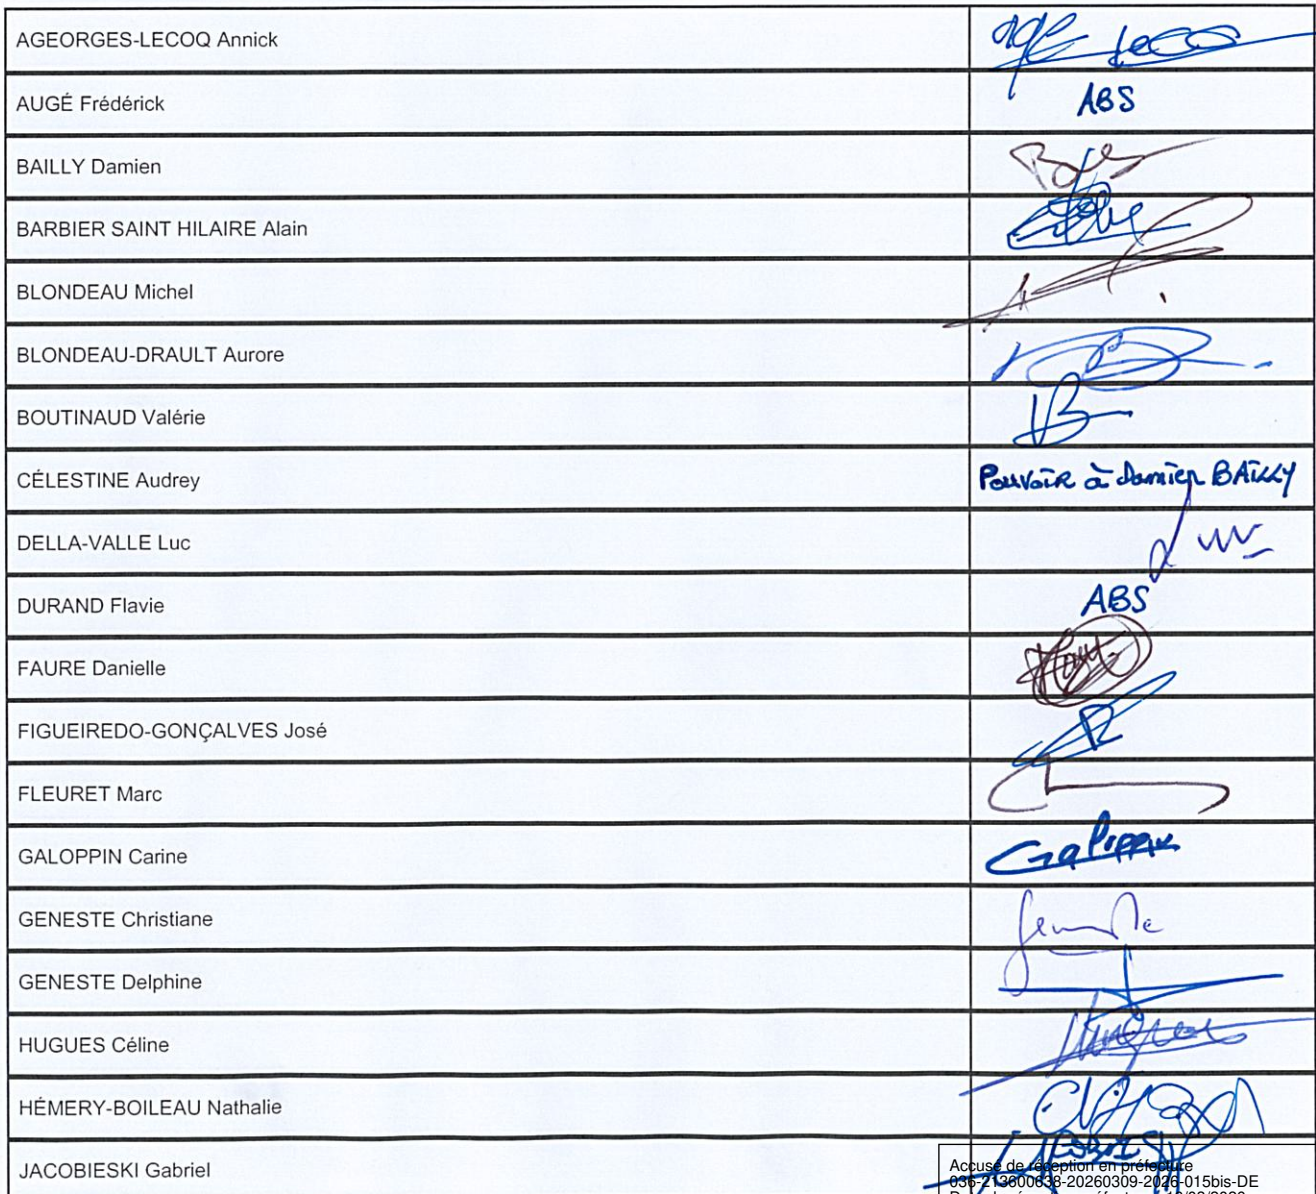 AGEORGES-LECOQ Annick
AUGÉ Frédérick ABS
BAILLY Damien
BARBIER SAINT HILAIRE Alain
BLONDEAU Michel
BLONDEAU-DRAULT Aurore
BOUTINAUD Valérie
CÉLESTINE Audrey Pouvoir à Damien BAILLY
DELLA-VALLE Luc
DURAND Flavie ABS
FAURE Danielle
FIGUEIREDO-GONÇALVES José
FLEURET Marc
GALOPPIN Carine
GENESTE Christiane
GENESTE Delphine
HUGUES Céline
HÉMERY-BOILEAU Nathalie
JACOBIESKI Gabriel
Accusé de réception en préfecture
036-213600638-20260309-2026-015bis-DE